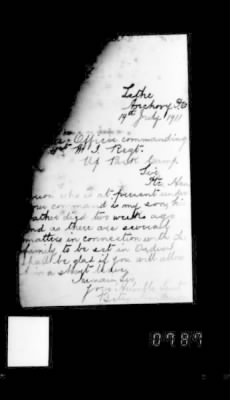 Lethe
Anchovy P.O.
19th July 1911
Officer commanding
W I Regt.
Up Park Camp
Sir
who is at present under
your command is my son, his
father died two weeks ago
and as there are several
matters in connection with the
family to be set in order I
shall be glad if you will allow
a short leave
I remain Sir
Your Humble Servt
0789